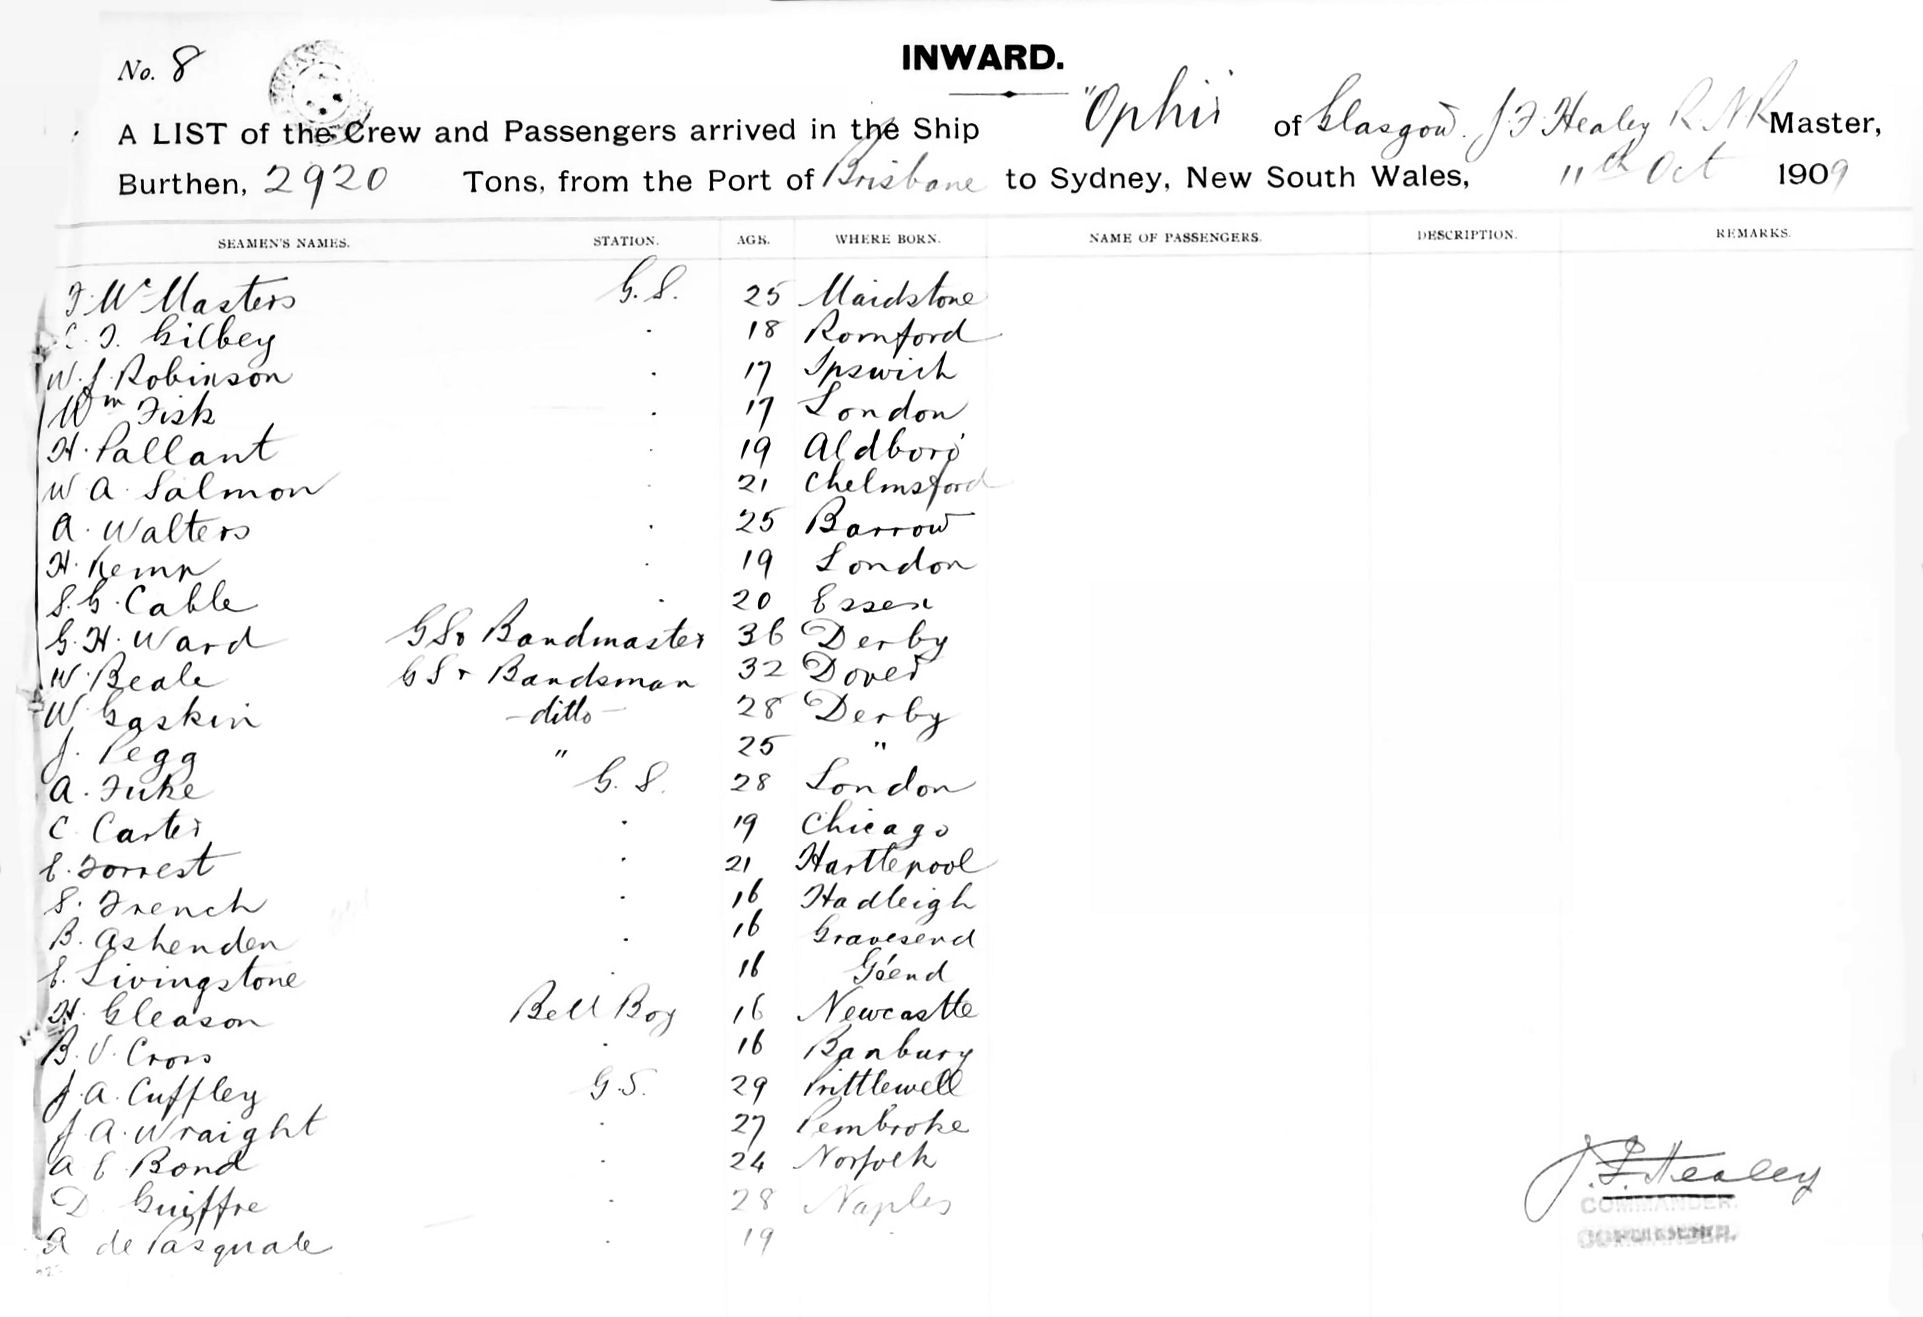 No. 8
INWARD.
A LIST of the Crew and Passengers arrived in the Ship "Ophir" of Glasgow. J. F. Healey R.N.R Master,
Burthen, 2920 Tons, from the Port of Brisbane to Sydney, New South Wales, 11th Oct 1909
SEAMEN'S NAMES. STATION. AGE. WHERE BORN. NAME OF PASSENGERS. DESCRIPTION. REMARKS.
F. McMasters G. S. 25 Maidstone
C. F. Gilbey . 18 Romford
W. J. Robinson . 17 Ipswich
Wm Fisk . 17 London
H. Pallant . 19 Aldboro'
W A Salmon . 21 Chelmsford
A. Walters . 25 Barrow
H. Kemp . 19 London
S. G. Cable . 20 Essex
G. H. Ward GS & Bandmaster 36 Derby
W. Beale GS & Bandsman 32 Dover
W Gaskin - ditto - 28 Derby
J. Pegg " 25 "
A. Fuke G. S. 28 London
C Carter . 19 Chicago
E. Forrest . 21 Hartlepool
S. French . 16 Hadleigh
B. Ashenden . 16 Gravesend
E. Livingstone . 16 G'end
H. Gleason Bell Boy 16 Newcastle
B. V. Cross . 16 Banbury
J. A. Cuffley G. S. 29 Prittlewell
J. A. Wraight . 27 Pembroke
A E Bond . 24 Norfolk
D Guiffre . 28 Naples
A de Pasquale . 19 .
J. F. Healey
COMMANDER.